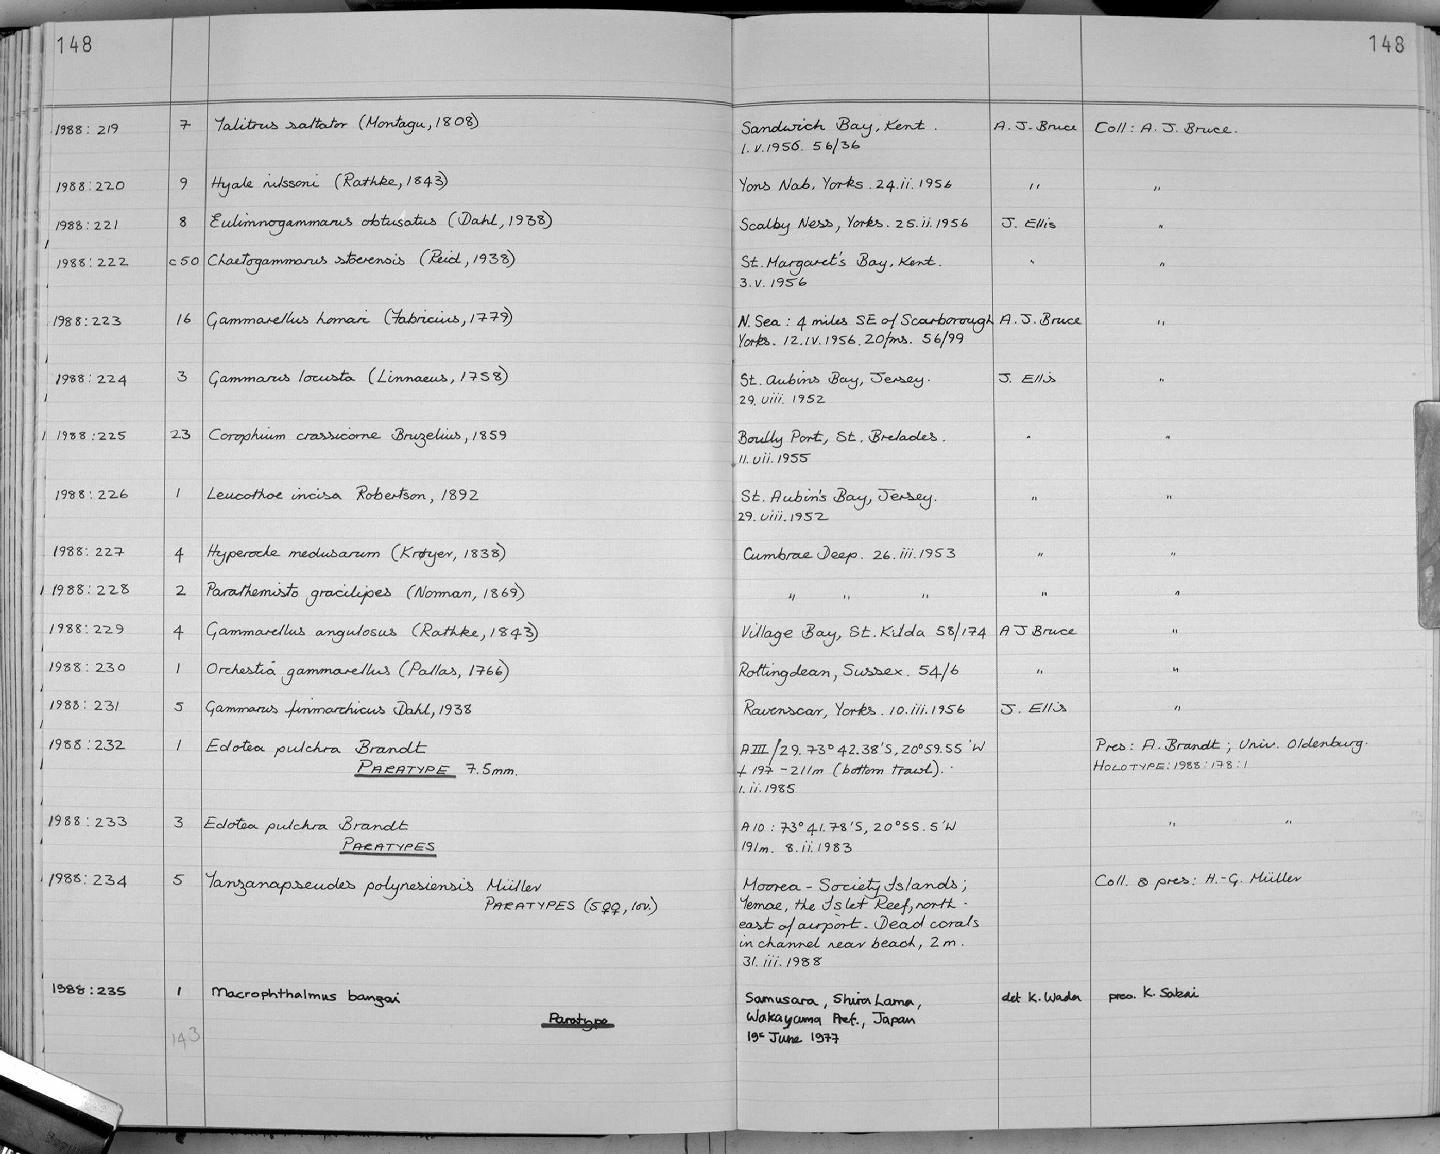 148 148
1988:219 7 Talitrus saltator (Montagu, 1808) Sandwich Bay, Kent. A. J. Bruce Coll: A. J. Bruce.
1.V.1956. 56/36
1988:220 9 Hyale nilssoni (Rathke, 1843) Yons Nab, Yorks. 24.ii.1956 " "
1988:221 8 Eulimnogammarus obtusatus (Dahl, 1938) Scalby Ness, Yorks. 25.ii.1956 J. Ellis "
1988:222 c50 Chaetogammarus stoerensis (Reid, 1938) St. Margaret's Bay, Kent. " "
3.v.1956
1988:223 16 Gammarellus homari (Fabricius, 1779) N. Sea: 4 miles SE of Scarborough A. J. Bruce "
Yorks. 12.IV.1956. 20fms. 56/99
1988:224 3 Gammarus locusta (Linnaeus, 1758) St. Aubins Bay, Jersey. J. Ellis "
29.viii.1952
1988:225 23 Corophium crassicorne Bruzelius, 1859 Boully Port, St. Brelades. " "
11.vii.1955
1988:226 1 Leucothoe incisa Robertson, 1892 St. Aubin's Bay, Jersey. " "
29.viii.1952
1988:227 4 Hyperoche medusarum (Krøyer, 1838) Cumbrae Deep. 26.iii.1953 " "
1988:228 2 Parathemisto gracilipes (Norman, 1869) " " " " "
1988:229 4 Gammarellus angulosus (Rathke, 1843) Village Bay, St. Kilda 58/174 A J Bruce "
1988:230 1 Orchestia gammarellus (Pallas, 1766) Rottingdean, Sussex. 54/6 " "
1988:231 5 Gammarus finmarchicus Dahl, 1938 Ravenscar, Yorks. 10.iii.1956 J. Ellis "
1988:232 1 Edotea pulchra Brandt A III/29. 73°42.38'S, 20°59.55'W Pres: A. Brandt; Univ. Oldenburg.
PARATYPE 7.5mm. 197-211m (bottom trawl). HOLOTYPE:1988:178:1
1.ii.1985
1988:233 3 Edotea pulchra Brandt A10: 73°41.78'S, 20°55.5'W " "
PARATYPES 191m. 8.ii.1983
1988:234 5 Tanzanapseudes polynesiensis Müller Moorea - Society Islands; Coll. & pres: H.-G. Müller
PARATYPES (5♀♀, 1ov.) Temae, the Islet Reef, north-
east of airport. Dead corals
in channel near beach, 2m.
31.iii.1988
1988:235 1 Macrophthalmus banzai Samusara, Shira Lama, det K. Wada pres. K. Sakai
Paratype Wakayama Pref., Japan
143 19th June 1977